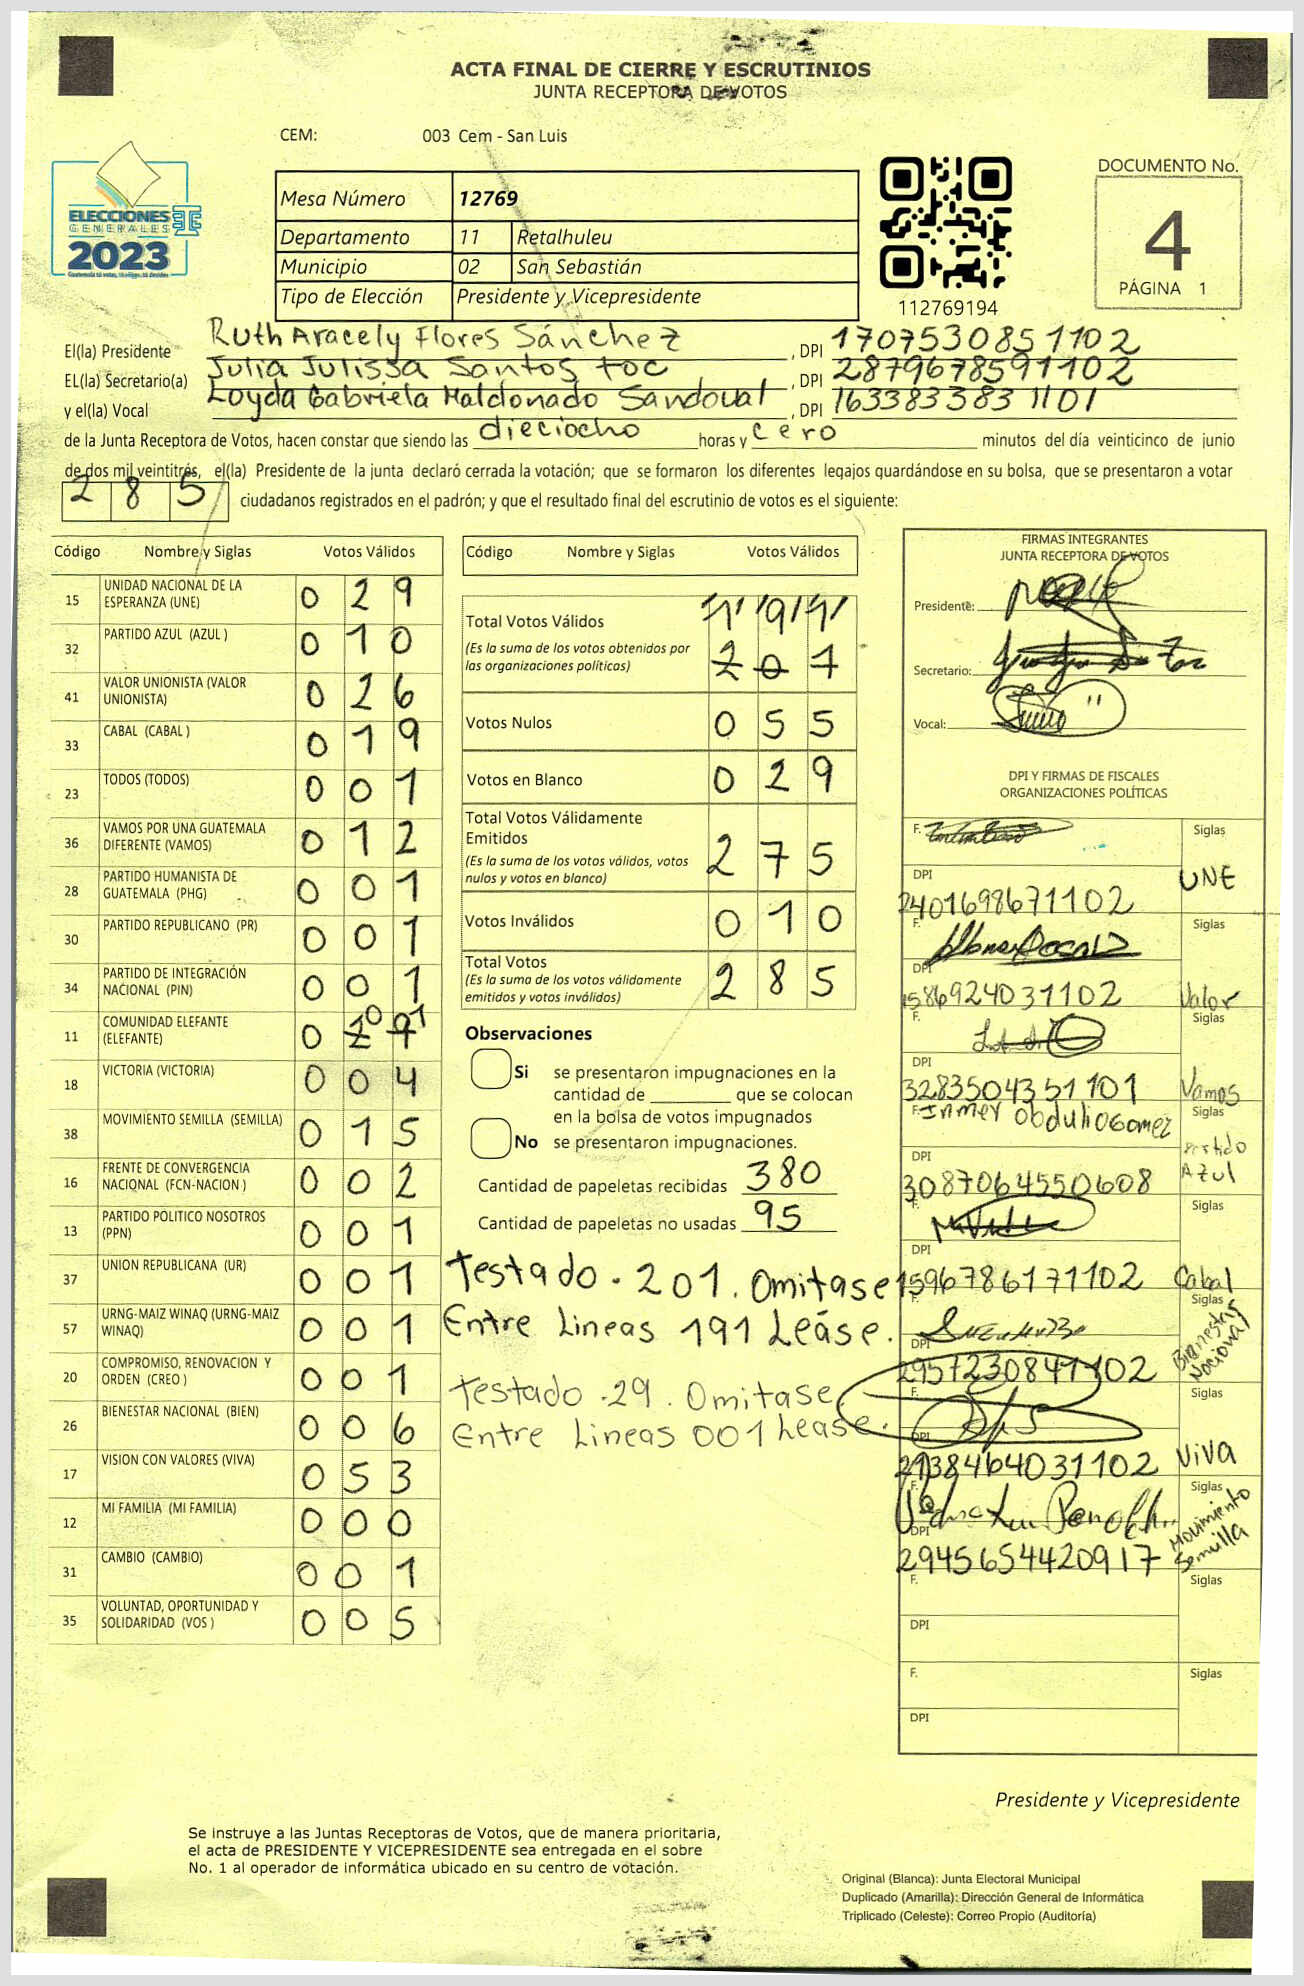 ACTA FINAL DE CIERRE Y ESCRUTINIOS
JUNTA RECEPTORA DE VOTOS
CEM: 003 Cem - San Luis
ELECCIONES
GENERALES
2023
Mesa Número 12769
Departamento 11 Retalhuleu
Municipio 02 San Sebastián
Tipo de Elección Presidente y Vicepresidente
112769194
DOCUMENTO No.
4
PÁGINA 1
El(la) Presidente Ruth Aracely Flores Sánchez, DPI 1707530851102
EL(la) Secretario(a) Julia Julissa Santos toc, DPI 2879678591102
y el(la) Vocal Loyda Gabriela Maldonado Sandoval, DPI 1633833831101
de la Junta Receptora de Votos, hacen constar que siendo las dieciocho horas y cero minutos del día veinticinco de junio
de dos mil veintitrés, el(la) Presidente de la junta declaró cerrada la votación; que se formaron los diferentes legajos guardándose en su bolsa, que se presentaron a votar
285 ciudadanos registrados en el padrón; y que el resultado final del escrutinio de votos es el siguiente:
Código Nombre y Siglas Votos Válidos
15 UNIDAD NACIONAL DE LA ESPERANZA (UNE) 0 2 9
32 PARTIDO AZUL (AZUL ) 0 1 0
41 VALOR UNIONISTA (VALOR UNIONISTA) 0 2 6
33 CABAL (CABAL ) 0 1 9
23 TODOS (TODOS) 0 0 1
36 VAMOS POR UNA GUATEMALA DIFERENTE (VAMOS) 0 1 2
28 PARTIDO HUMANISTA DE GUATEMALA (PHG) 0 0 1
30 PARTIDO REPUBLICANO (PR) 0 0 1
34 PARTIDO DE INTEGRACIÓN NACIONAL (PIN) 0 0 1
11 COMUNIDAD ELEFANTE (ELEFANTE) 0 0 1
18 VICTORIA (VICTORIA) 0 0 4
38 MOVIMIENTO SEMILLA (SEMILLA) 0 1 5
16 FRENTE DE CONVERGENCIA NACIONAL (FCN-NACION ) 0 0 2
13 PARTIDO POLITICO NOSOTROS (PPN) 0 0 1
37 UNION REPUBLICANA (UR) 0 0 1
57 URNG-MAIZ WINAQ (URNG-MAIZ WINAQ) 0 0 1
20 COMPROMISO, RENOVACION Y ORDEN (CREO ) 0 0 1
26 BIENESTAR NACIONAL (BIEN) 0 0 6
17 VISION CON VALORES (VIVA) 0 5 3
12 MI FAMILIA (MI FAMILIA) 0 0 0
31 CAMBIO (CAMBIO) 0 0 1
35 VOLUNTAD, OPORTUNIDAD Y SOLIDARIDAD (VOS ) 0 0 5
Código Nombre y Siglas Votos Válidos
Total Votos Válidos 1 9 1
(Es la suma de los votos obtenidos por las organizaciones políticas) 2 0 1
Votos Nulos 0 5 5
Votos en Blanco 0 2 9
Total Votos Válidamente Emitidos
(Es la suma de los votos válidos, votos nulos y votos en blanco) 2 7 5
Votos Inválidos 0 1 0
Total Votos
(Es la suma de los votos válidamente emitidos y votos inválidos) 2 8 5
Observaciones
Si se presentaron impugnaciones en la
cantidad de ________ que se colocan
en la bolsa de votos impugnados
No se presentaron impugnaciones.
Cantidad de papeletas recibidas 380
Cantidad de papeletas no usadas 95
Testado . 201. Omitase
Entre Lineas 191 Leáse.
Testado .29. Omitase
Entre Lineas 001 Lease.
FIRMAS INTEGRANTES
JUNTA RECEPTORA DE VOTOS
Presidente:
Secretario:
Vocal:
DPI Y FIRMAS DE FISCALES
ORGANIZACIONES POLÍTICAS
F. Siglas
DPI 2401698671102 UNE
F. Siglas
DPI 1586924031102 Valor
F. Siglas
DPI 3283504351101 Vamos
F. Inmer Obdulio Gomez Siglas
DPI 3087064550608 Partido Azul
F. Siglas
DPI 1596786171102 Cabal
F. Siglas
DPI 2957230841102 Bienestar Nacional
F. Siglas
DPI 2938464031102 VIVA
F. Siglas
DPI 2945654420917 Movimiento Semilla
F. Siglas
DPI
F. Siglas
DPI
Presidente y Vicepresidente
Se instruye a las Juntas Receptoras de Votos, que de manera prioritaria,
el acta de PRESIDENTE Y VICEPRESIDENTE sea entregada en el sobre
No. 1 al operador de informática ubicado en su centro de votación.
Original (Blanca): Junta Electoral Municipal
Duplicado (Amarilla): Dirección General de Informática
Triplicado (Celeste): Correo Propio (Auditoría)